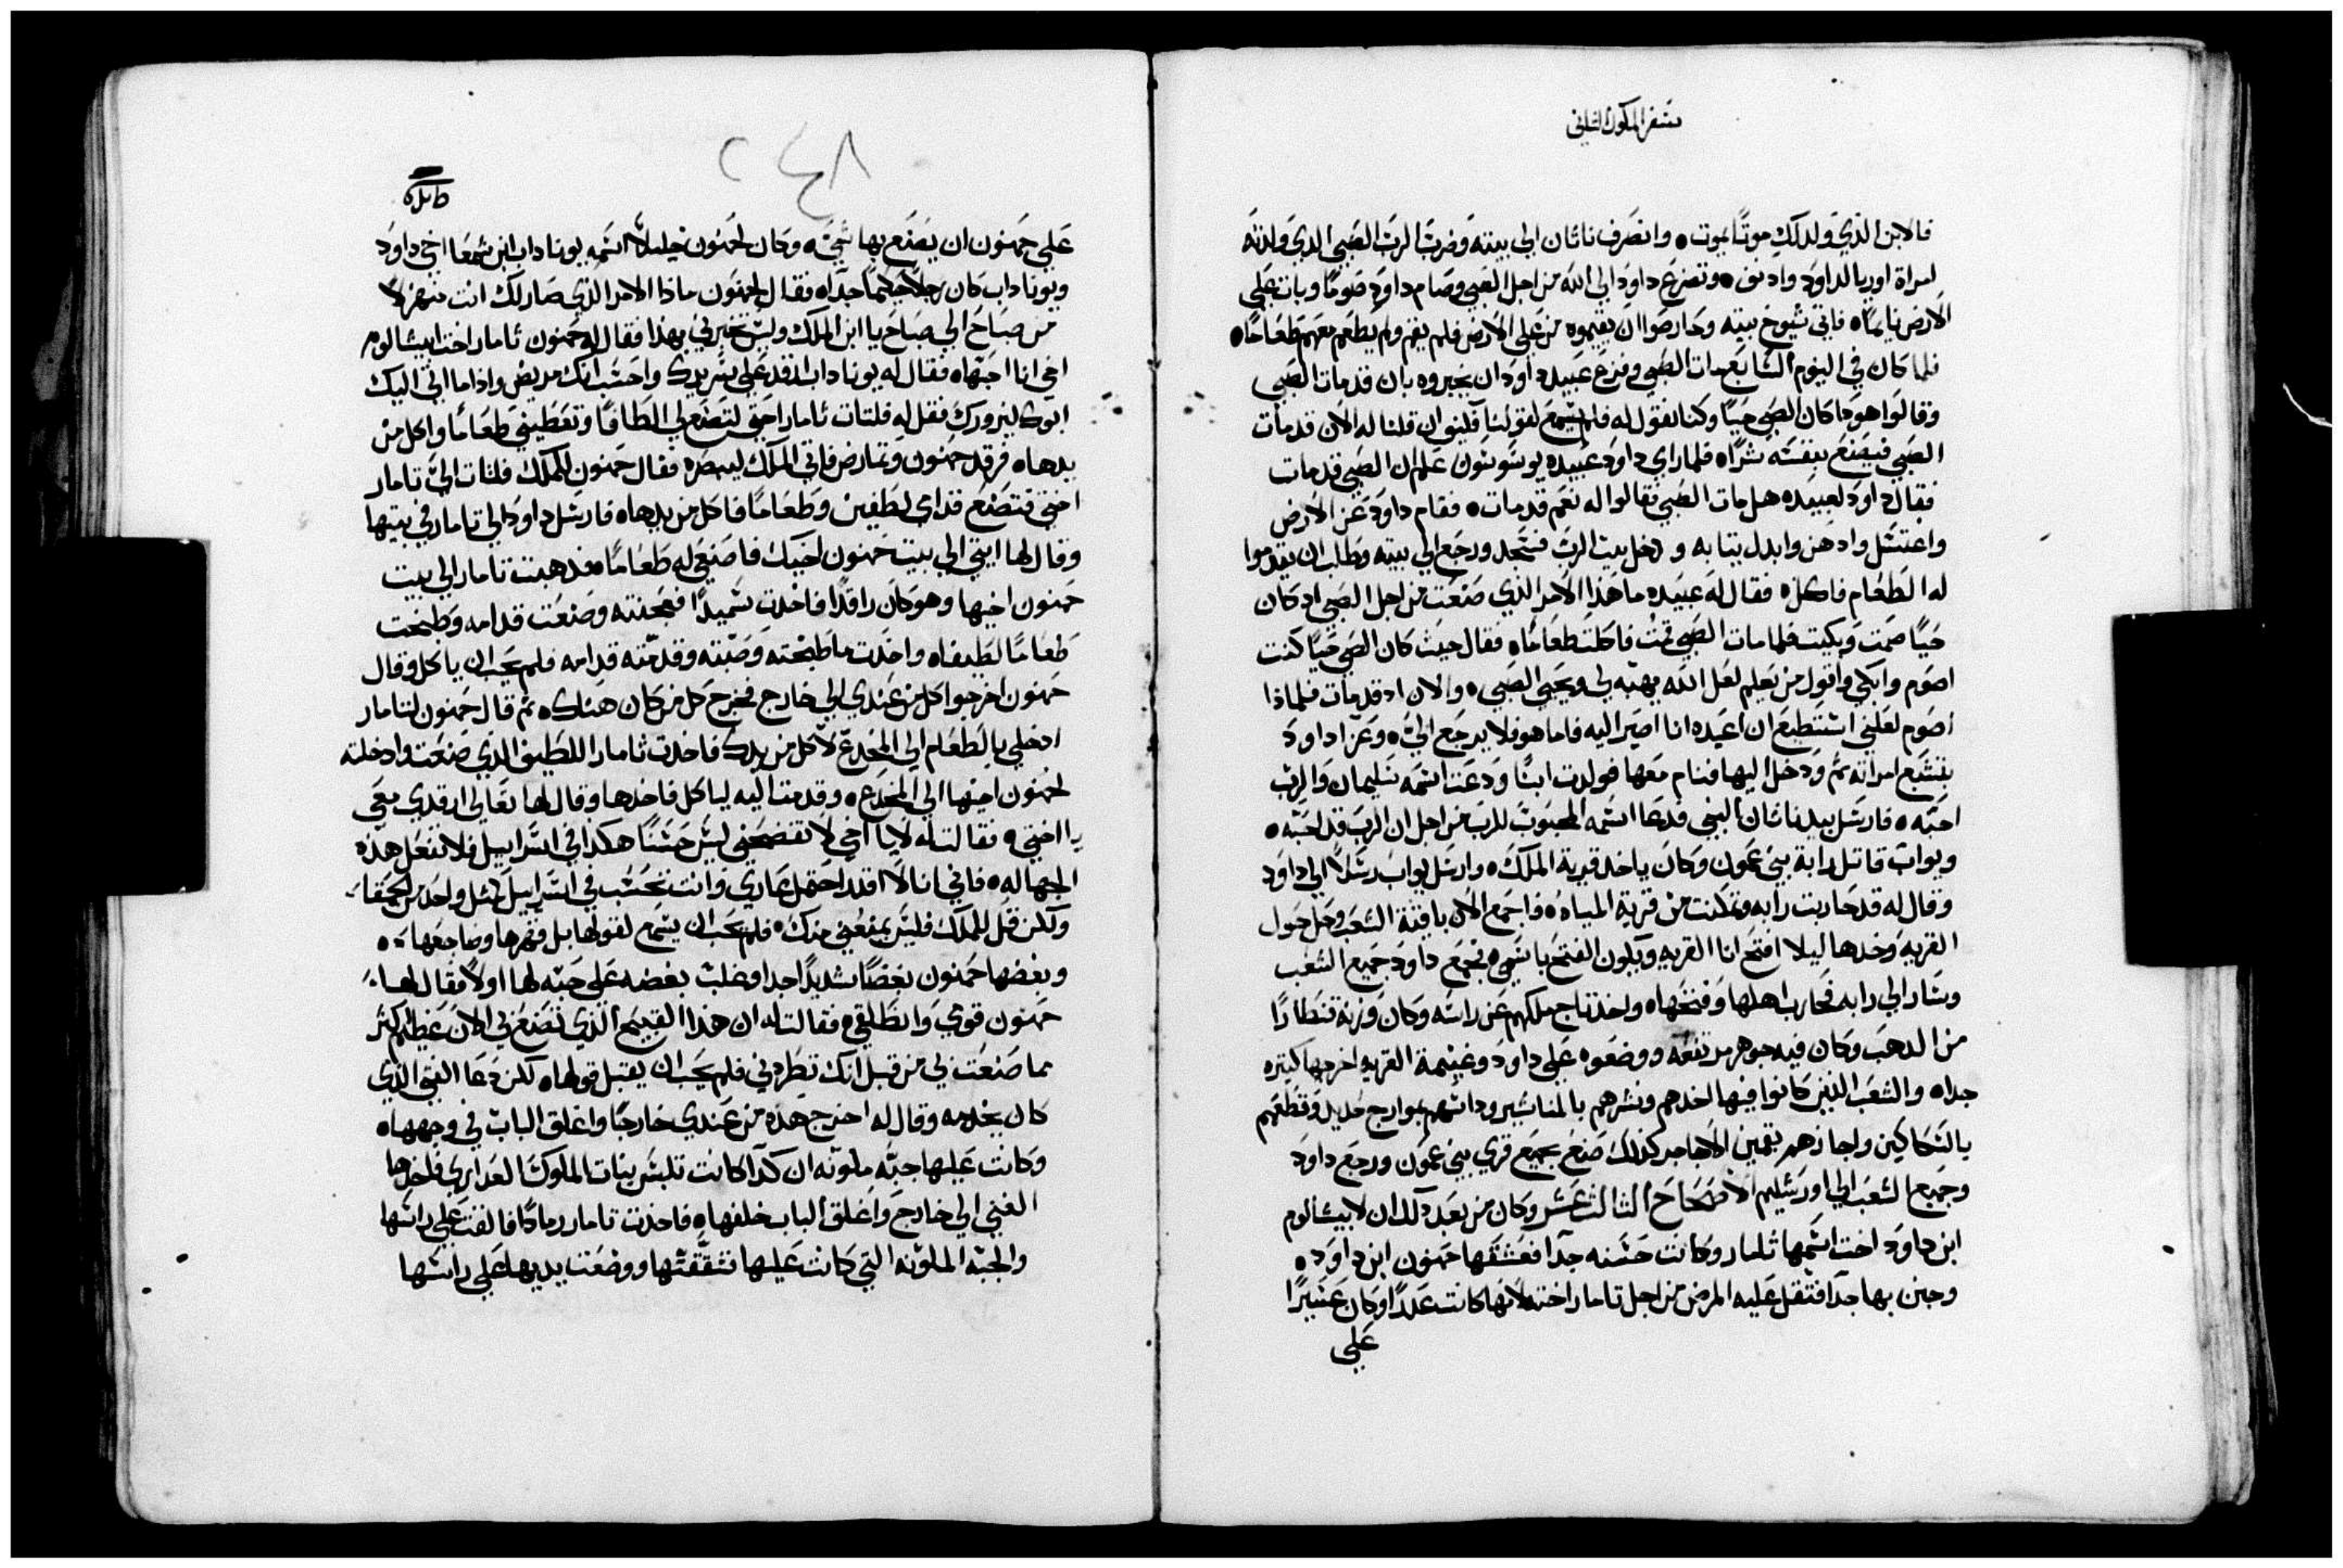 سفر الملوك الثاني
فالابن الذي ولد لك موتًا يموت، وانصرف ناثان الي بيته وضرب الرب الصبي الذي ولدته
امراة اوريا لداود وادنف، وتضرع داود الي الله من اجل الصبي وصام داود صومًا وبات علي
الارض نايمًا، فاتي شيوخ بيته وحارصوا ان يقيموه من علي الارض فلم يقم ولم يطعم معهم طعامًا،
فلما كان في اليوم السابع مات الصبي وفزع عبيد داود ان يخبروه بان قد مات الصبي
وقالوا هوذا كان الصبي حيًا وكنا نقول له فلم يسمع لقولنا فكيف ان قلنا له الان قد مات
الصبي فيصنع بنفسه شرًا، فلما راي داود عبيده يوسوسون علم ان الصبي قد مات
فقال داود لعبيده هل مات الصبي فقالوا له نعم قد مات، فقام داود عن الارض
واغتسل وادهن وابدل ثيابه ودخل بيت الرب فسجد ورجع الي بيته وطلب ان يقدموا
له الطعام فاكل، فقال له عبيده ما هذا الامر الذي صنعت من اجل الصبي اد كان
حيًا صمت وبكيت فلما مات الصبي قمت فاكلت طعامًا، فقال حيث كان الصبي حيًا كنت
اصوم وابكي واقول من يعلم لعل الله يهبه لي ويحيي الصبي، والان اد قد مات فلماذا
اصوم لعلني استطيع ان اعيده انا اصير اليه فاما هو فلا يرجع الي، وعزا داود
بتشبع امراته ثم ودخل اليها فنام معها فولدت ابنًا ودعت اسمه سليمان والرب
احبه، فارسل بيد ناثان النبي فدعا اسمه المحبوب للرب من اجل ان الرب قد احبه،
ويواب قاتل رابة بني عمون وكان ياخد قرية الملك، وارسل يواب رسلًا الي داود
وقال له قد حاربت رابه وتمكنت من قرية المياه، فاجمع الان باقية الشعب وحل حول
القريه وخدها ليلا افتح انا القريه ويكون الفتح باسمي، فجمع داود جميع الشعب
وسار الي رابه فحارب اهلها وفتحها، واخد تاج ملكهم عن راسه وكان وزنه قنطارًا
من الدهب وكان فيه جوهر مرتفعه ووضعوه علي داود وغنيمة القريه اخرجها كثيره
جدا، والشعب الذين كانوا فيها اخدهم ونشرهم بالمناشير وداسهم بموارج حديد وقطعهم
بالسكاكين واجازهم بقمين الاجاجر كذلك صنع بجميع قري بني عمون ورجع داود
وجميع الشعب الي اورشليم الاصحاح الثالث عشر وكان من بعد ذلك ان لابيشالوم
ابن داود اخت اسمها تامار وكانت حسنه جدا فعشقها حمنون ابن داود،
وحزن بها جدا فثقل عليه المرض من اجل تامار اخته لانها كانت عدرا وكان عسيرًا
علي
٢٤٨
علي حمنون ان يصنع بها شي، وكان لحمنون خليلًا اسمه يوناداب ابن شمعا اخي داود
ويوناداب كان رجلًا حكيمًا جدا، فقال لحمنون ماذا الامر الذي صار لك انت منهزلا
من صباح الي صباح يا ابن الملك وليس تخبرني بهذا فقال له حمنون ثامار اخت ابيشالوم
اخي انا احبها، فقال له يوناداب ارقد علي سريرك واحسب انك مريض واذا ما اتي اليك
ابوك ليزورك فقل له فلتات ثامار اختي لتصنع لي الطافًا وتعطيني طعامًا واكل من
يدها، فرقد حمنون وتمارض فاتي الملك ليبصره فقال حمنون للملك فلتات الي تامار
اختي فتصنع قدامي لطفين وطعامًا فاكل من يدها، فارسل داود الي تامار في بيتها
وقال لها ايتي الي بيت حمنون اخيك فاصنعي له طعامًا، فدهبت تامار الي بيت
حمنون اخيها وهو كان راقدًا فاخدت سميدًا فعجنته وصنعت قدامه وطبخت
طعامًا لطيفا، واخدت ما طبخته وصبته وقدمته قدامه فلم يحب ان ياكل وقال
حمنون اخرجوا كل من عندي الي خارج فخرج كل من كان هناك، ثم قال حمنون لتامار
ادخلي بالطعام الي المخدع لاكل من يدك فاخدت ثامار اللطيف الذي صنعت وادخلته
لحمنون اخيها الي المخدع، وقدمت اليه لياكل فاخدها وقال لها تعالي ارقدي معي
يا اختي، فقالت له لا يا اخي لا تفضحني ليس حسنًا هكدا في اسراييل فلا تفعل هذه
الجهاله، فاني انا لا اقدر احتمل عاري وانت تحسب في اسراييل كمثل واحد من الحمقا،
ولكن قل للملك فليس يمنعني منك، فلم يحب ان يسمع لقولها بل قهرها وضاجعها،
وبغضها حمنون بغضًا شديدًا جدا وغلب بغضه علي حبه لها اولًا فقال لها
حمنون قومي وانطلقي، فقالت له ان هذا القبيح الذي تصنع بي الان عظيم اكثر
مما صنعت بي من قبل انك تطردني فلم يحب ان يقبل قولها، لكن دعا الفتي الذي
كان يخدمه وقال له اخرج هده من عندي خارجًا واغلق الباب في وجهها،
وكانت عليها جبه ملونه ان كدا كانت تلبس بنات الملوك العداري فاخدها
الفتي الي خارج واغلق الباب خلفها، فاخدت تامار رمادًا فالقت علي راسها
والجبه الملونه التي كانت عليها شققتها ووضعت يديها علي راسها